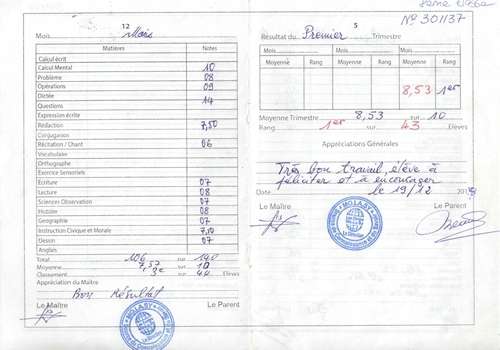 12
Mois Mars
Matières Notes
Calcul écrit
Calcul Mental 10
Problème 08
Opérations 09
Dictée
Questions 14
Expression écrite
Rédaction 7,50
Conjugaison
Récitation / Chant 06
Vocabulaire
Orthographe
Exercice Sensoriels
Ecriture 07
Lecture 08
Sciences Observation 07
Histoire 08
Geographie 07
Instruction Civique et Morale 7,50
Dessin 07
Anglais
Total 106 sur 140
Moyenne 7,57 sur 10
Classement 3e sur Elèves
Appréciation du Maître
Bon Résultat
Le Maître Le Parent
N° 301137
5
Résultat du Premier Trimestre
Mois Mois Mois
Moyenne Rang Moyenne Rang Moyenne Rang
8,53 1er
Moyenne Trimestre 8,53 sur 10
Rang 1er sur 43 Elèves
Appréciations Générales
Très bon travail, élève à
féliciter et à encourager
Date le 19/12
Le Maître Le Parent
MOLASY
La Direction